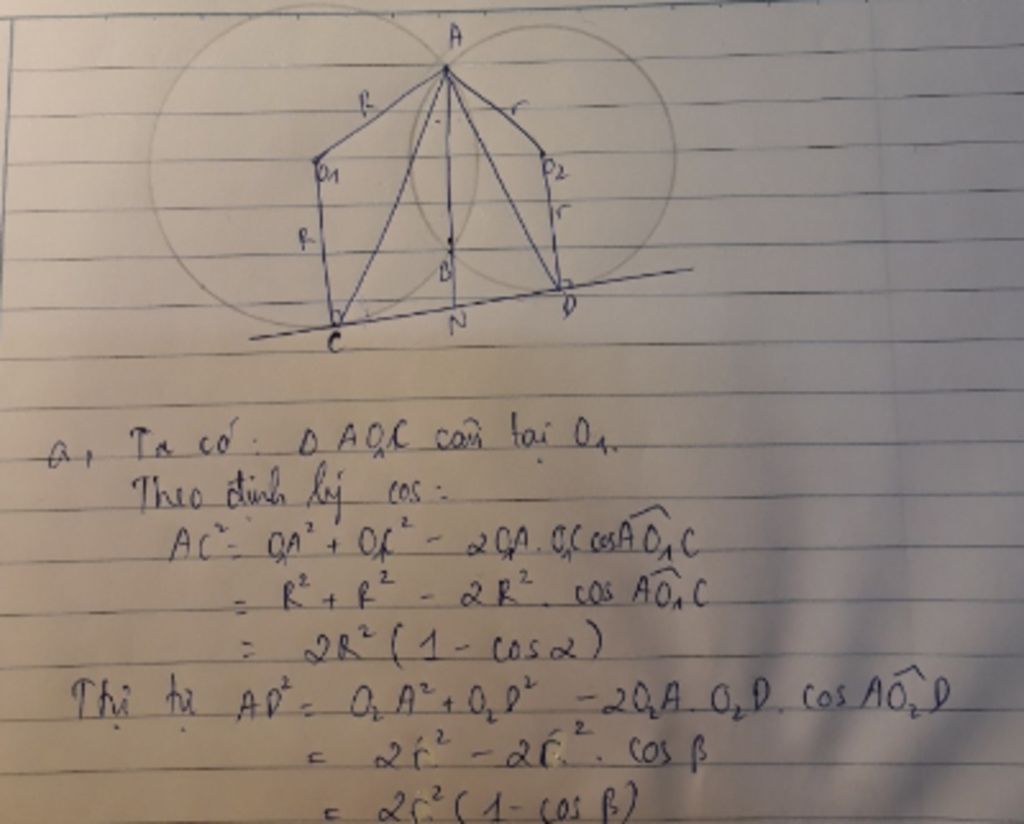 A
R
r
O₁
O₂
R
r
B
C
N
D
a, Ta có: Δ AO₁C cân tại O₁.
Theo định lý cos:
AC² = O₁A² + O₁C² - 2O₁A. O₁C cos AO₁C
= R² + R² - 2R². cos AO₁C
= 2R² (1 - cos α)
Thị tự AD² = O₂A² + O₂D² - 2O₂A. O₂D. cos AO₂D
= 2r² - 2r². cos β
= 2r² (1 - cos β)